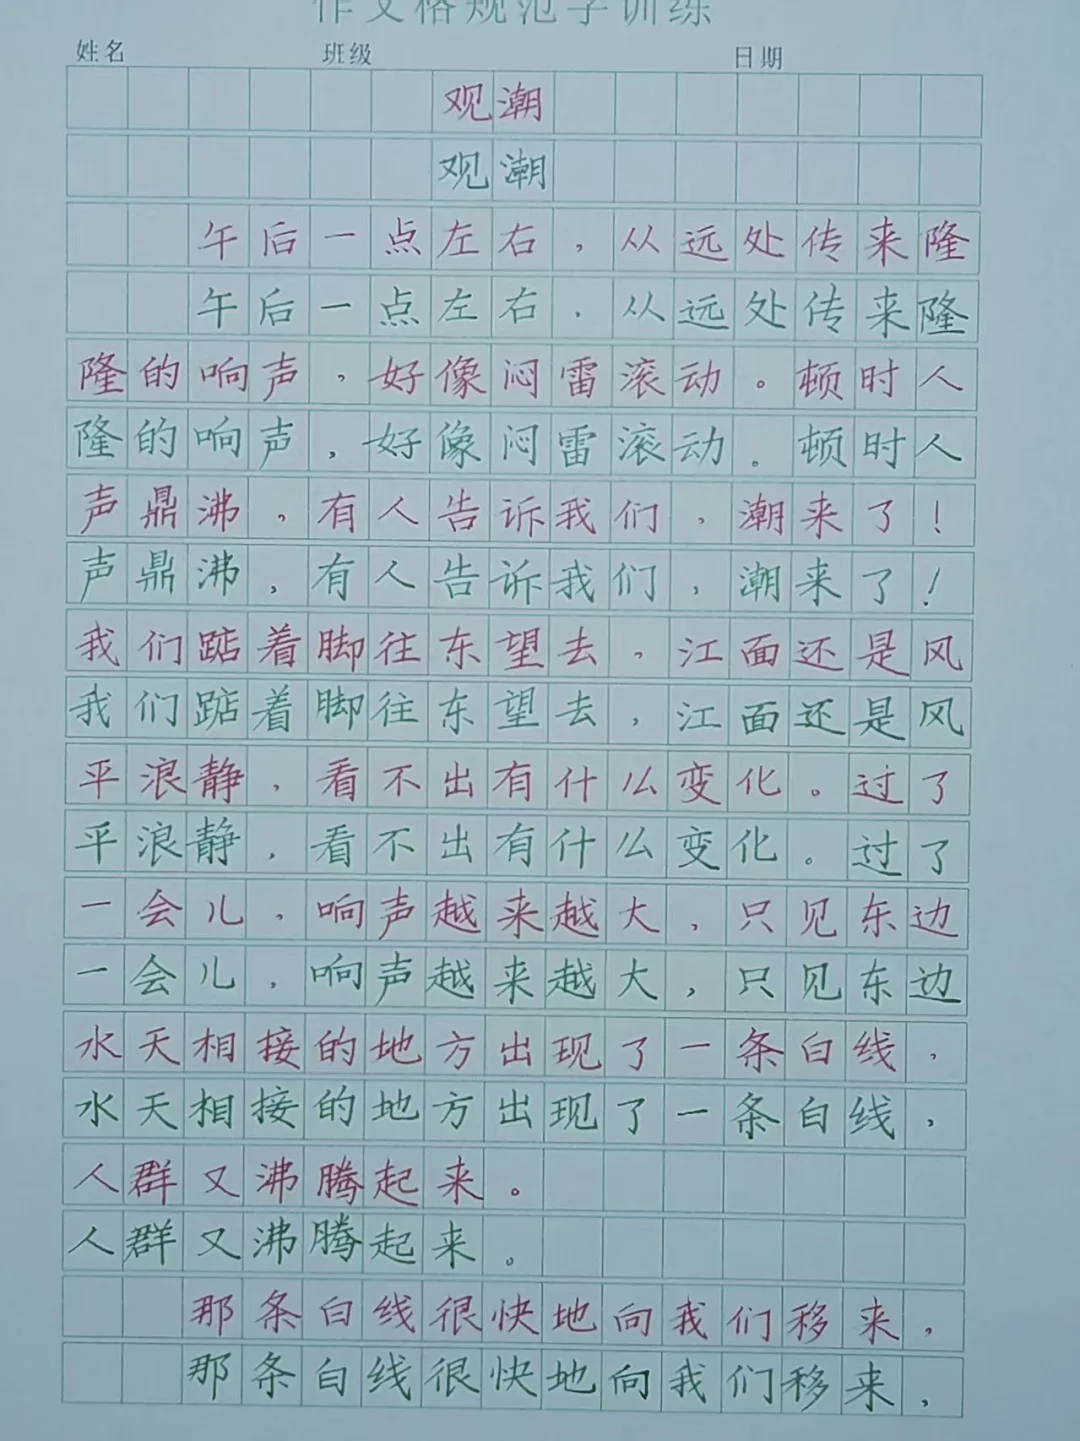 作文格规范字训练
姓名 班级 日期
观潮
观潮
午后一点左右，从远处传来隆
午后一点左右，从远处传来隆
隆的响声，好像闷雷滚动。顿时人
隆的响声，好像闷雷滚动。顿时人
声鼎沸，有人告诉我们，潮来了！
声鼎沸，有人告诉我们，潮来了！
我们踮着脚往东望去，江面还是风
我们踮着脚往东望去，江面还是风
平浪静，看不出有什么变化。过了
平浪静，看不出有什么变化。过了
一会儿，响声越来越大，只见东边
一会儿，响声越来越大，只见东边
水天相接的地方出现了一条白线，
水天相接的地方出现了一条白线，
人群又沸腾起来。
人群又沸腾起来。
那条白线很快地向我们移来，
那条白线很快地向我们移来，